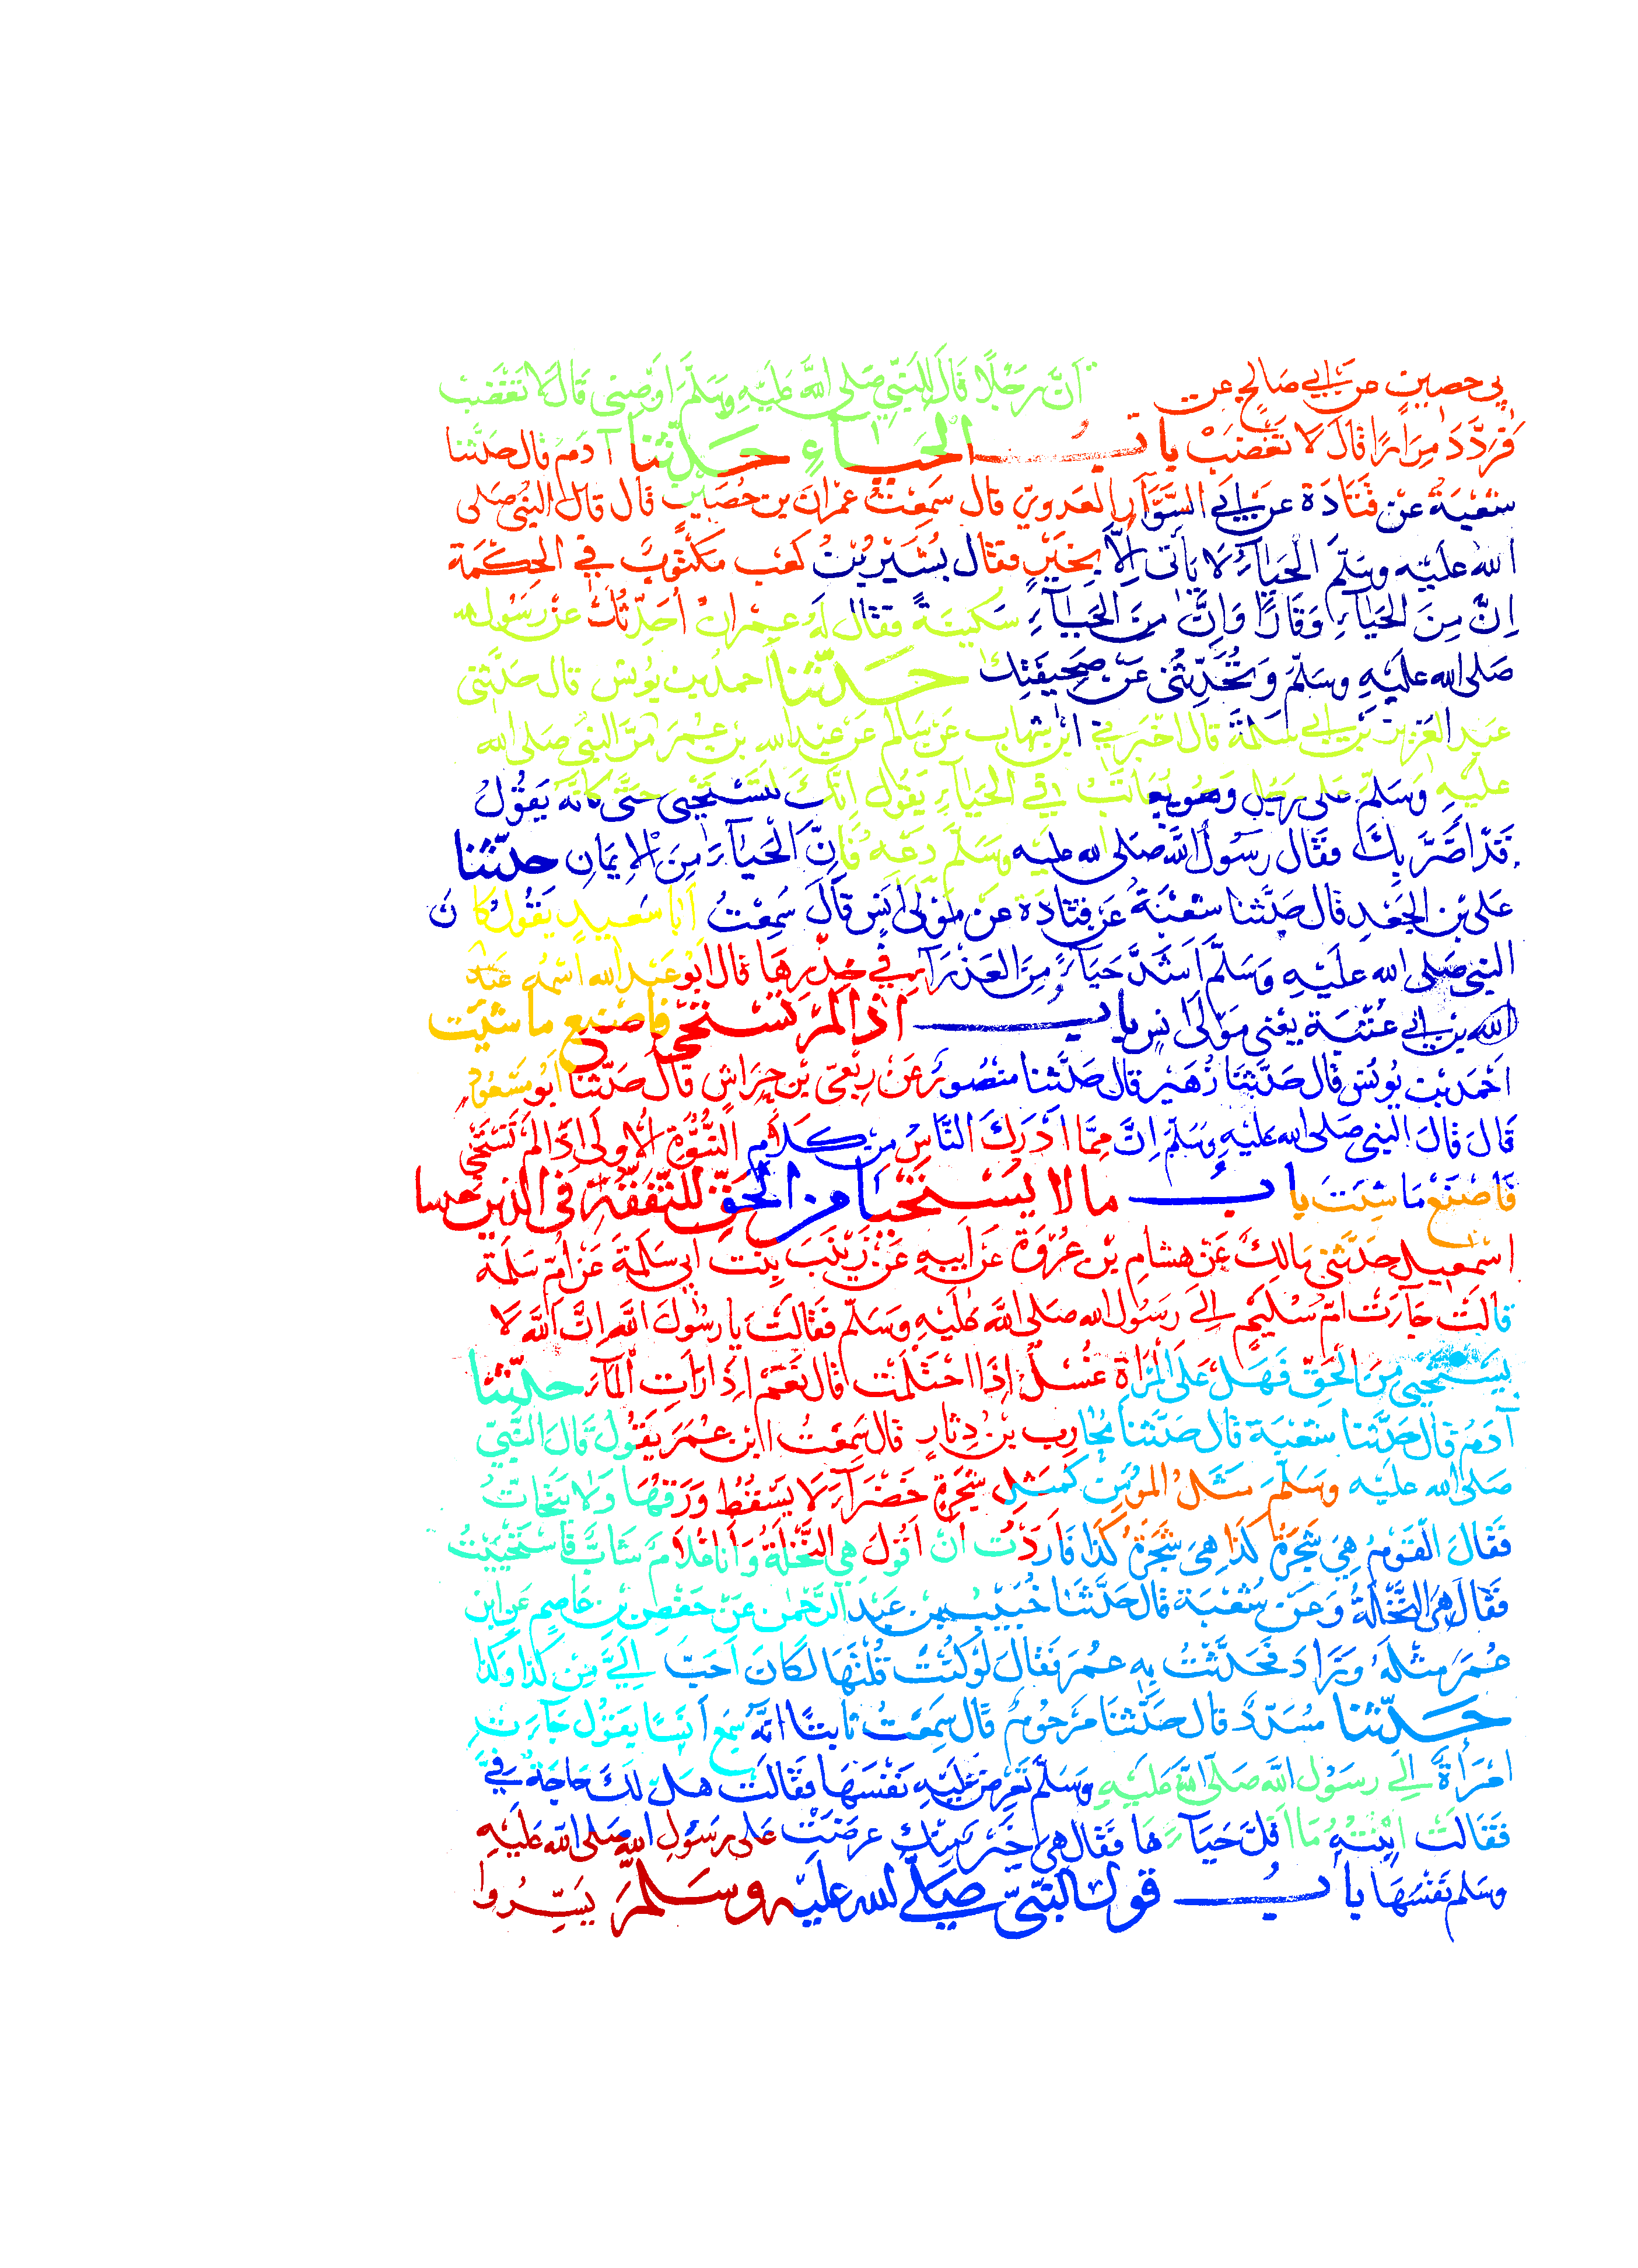 بي حصين عن أبي صالح عن أنَّ رجلًا قال للنبيّ صلى اللّه عليه وسلّم أوصني قال لا تغضب
فردّد مرارًا قال لا تغضب باب الحياء حدّثنا آدم قال حدّثنا
شعبة عن قتادة عن أبي السَّوَّار العدويّ قال سمعت عمران بن حصين قال قال النبي صلى
الله عليه وسلّم الحياء لا يأتي إلّا بخير فقال بشير بن كعب مكتوب في الحكمة
إنّ من الحياء وقارًا وإنّ من الحياء سكينة فقال له عمران أحدّثك عن رسول الله
صلى الله عليه وسلّم وتحدّثني عن صحيفتك حدّثنا احمد بن يونس قال حدّثني
عبد العزيز بن أبي سلمة قال اخبرني ابن شهاب عن سالم عن عبد الله بن عمر مرّ النبي صلى الله
عليه وسلّم على رجل وهو يعاتب في الحياء يقول إنّك لتستحيي حتّى كأنّه يقول
قد أضرّ بك فقال رسول اللّه صلى الله عليه وسلّم دعه فإنّ الحياء من الإيمان حدّثنا
على بن الجعد قال حدّثنا شعبة عن قتادة عن مولى أنس قال سمعت أبا سعيد يقول كان
النبي صلى الله عليه وسلّم أشدّ حياءً من العذراء في خدرها قال أبو عبد الله اسمه عبد
الله بن أبي عتبة يعني مولى انس باب اذا لم تستحي فاصنع ما شيت
احمد بن يونس قال حدّثنا زهير قال حدّثنا منصور عن ربعيّ بن حراش قال حدّثنا أبو مسعود
قال قال النبي صلى الله عليه وسلّم إنّ ممّا أدرك الناس من كلام النّبوّة الأولى إذا لم تستحي
فاصنع ما شئت باب ما لا يستحيا من الحقّ للتّفقّه في الدين حدثنا
اسمعيل حدّثني مالك عن هشام بن عروة عن أبيه عن زينب بنت أبي سلمة عن أمّ سلمة
قالت جاءت أمّ سليم إلى رسول الله صلى اللّه عليه وسلّم فقالت يا رسول اللّه إنّ اللّه لا
يستحيي من الحقّ فهل على المرأة غسل إذا احتلمت قال نعم إذا رأت الماء حدّثنا
آدم قال حدّثنا شعبة قال حدّثنا محارب بن دثار قال سمعت ابن عمر يقول قال النّبيّ
صلى الله عليه وسلّم مثل المؤمن كمثل شجرة خضراء لا يسقط ورقها ولا يتحاتّ
فقال القوم هي شجرة كذا هي شجرة كذا فأردت أن أقول هي النّخلة وأنا غلام شابّ فاستحييت
فقال هي النّخلة وعن شعبة قال حدّثنا خبيب بن عبد الرّحمن عن حفص بن عاصم عن ابن
عمر مثله وزاد فحدّثت به عمر فقال لو كنت قلتها لكان أحبّ إليّ من كذا وكذا
حدّثنا مسدّد قال حدّثنا مرحوم قال سمعت ثابتًا انّه سمع أنسًا يقول جاءت
امرأة إلى رسول اللّه صلى اللّه عليه وسلّم تعرض عليه نفسها فقالت هل لك حاجة فيّ
فقالت ابنته ما أقلّ حياءها فقال هي خير منك عرضت على رسول اللّه صلى اللّه عليه
وسلم نفسها باب قول النبيّ صلّى الله عليه وسلّم يسّروا